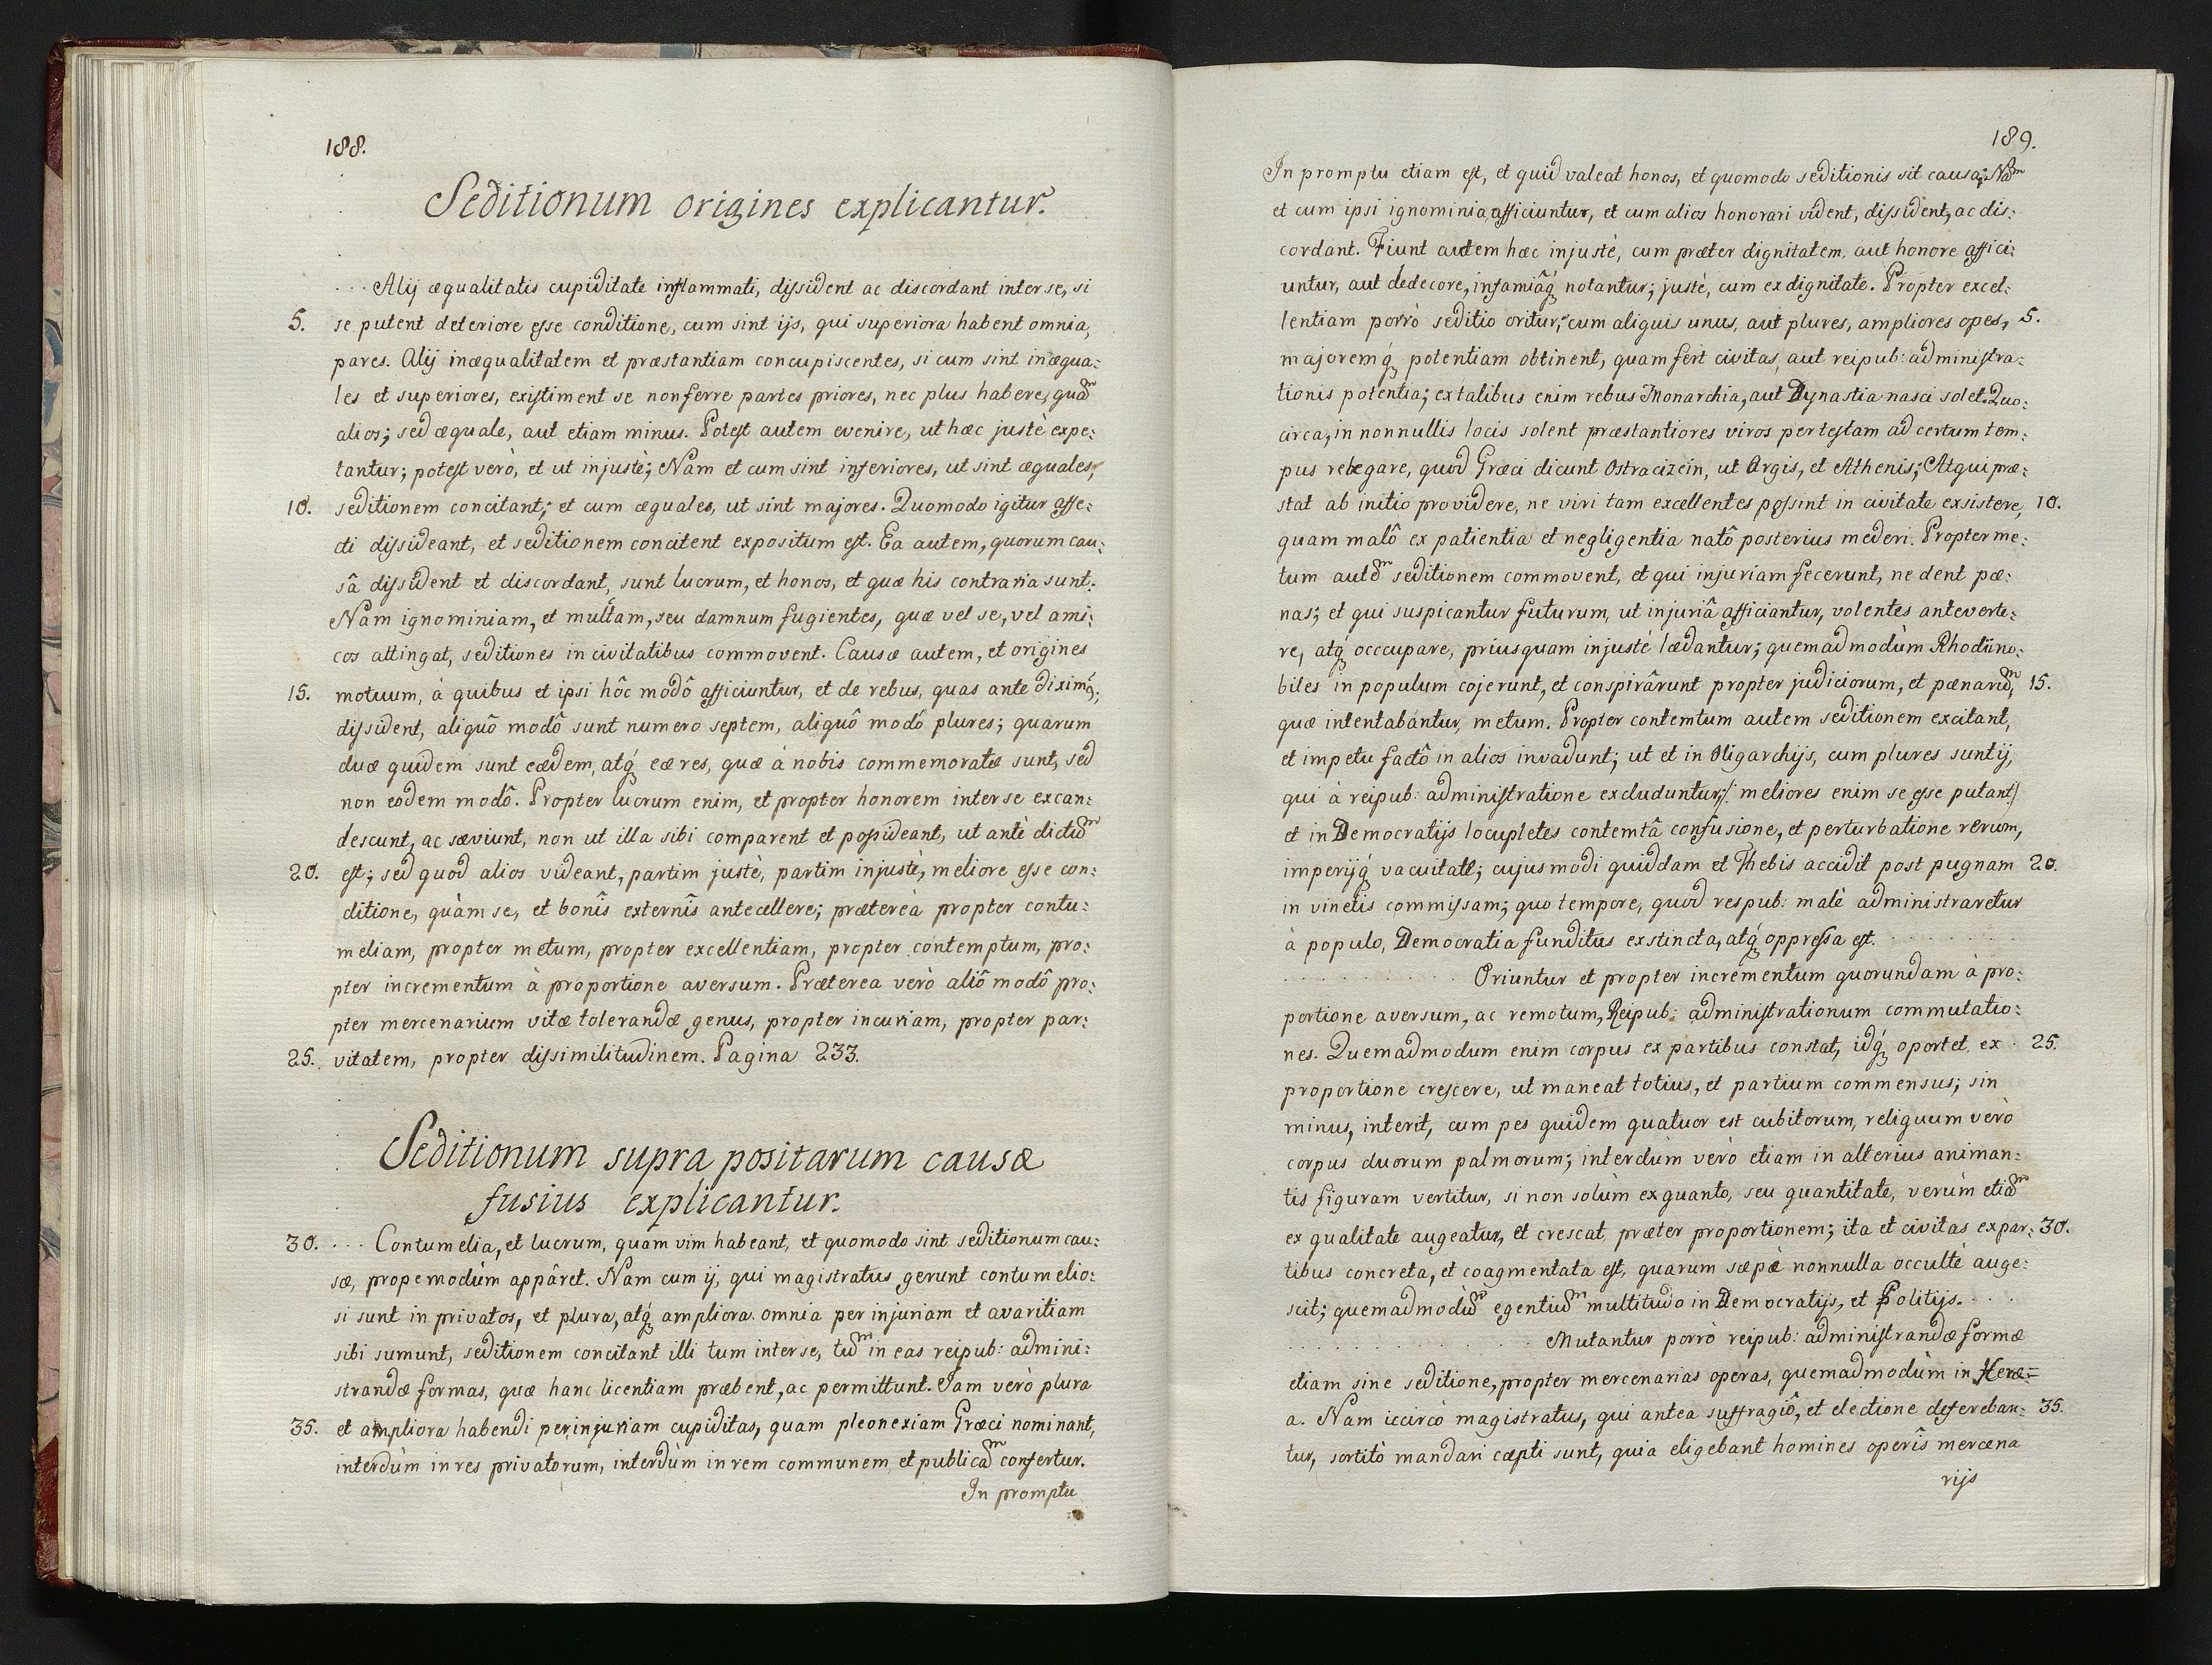 188.
Seditionum origines explicantur.
... Alij æqualitatis cupiditate inflammati, dissident ac discordant inter se, si
5. se putent deteriore esse conditione, cum sint ijs, qui superiora habent omnia,
pares. Alij inæqualitatem et præstantiam concupiscentes, si cum sint inæqua:
les et superiores, existiment se non ferre partes priores, nec plus habere, quam
alios; sed æquale, aut etiam minus. Potest autem evenire, ut hæc justè expe:
tantur; potest verò, et ut injustè; Nam et cum sint inferiores, ut sint æquales,
10. seditionem concitant; et cum æquales, ut sint majores. Quomodo igitur affe:
cti dissideant, et seditionem concitent expositum est. Ea autem, quorum cau:
sâ dissident et discordant, sunt lucrum, et honos, et quæ his contraria sunt.
Nam ignominiam, et multam, seu damnum fugientes, quæ vel se, vel ami:
cos attingat, seditiones in civitatibus commovent. Causæ autem, et origines
15. motuum, à quibus et ipsi hôc modô afficiuntur, et de rebus, quas ante diximꝰ;
dissident, aliquô modô sunt numero septem, aliquô modô plures; quarum
duæ quidem sunt eædem, atq́ʒ eæ res, quæ à nobis commemoratæ sunt, sed
non eodem modô. Propter lucrum enim, et propter honorem inter se excan:
descunt, ac sæviunt, non ut illa sibi comparent et possideant, ut antè dictum
20. est; sed quod alios videant, partim justè, partim injustè, meliore esse con:
ditione, quàm se, et bonîs externîs antecellere; præterèa propter contu:
meliam, propter metum, propter excellentiam, propter contemptum, pro:
pter incrementum à proportione aversum. Præterea verò aliô modô pro:
pter mercenarium vitæ tolerandæ genus, propter incuriam, propter par:
25. vitatem, propter dissimilitudinem. Pagina 233.
Seditionum supra positarum causæ
fusius explicantur.
30. ... Contumelia, et lucrum, quam vim habeant, et quomodo sint seditionum cau:
sæ, propemodùm appâret. Nam cum ij, qui magistratus gerunt contumelio:
si sunt in privatos, et plura, atq́ʒ ampliora omnia per injuriam et avaritiam
sibi sumunt, seditionem concitant illi tum inter se, tum in eas reipub: admini:
strandæ formas, quæ hanc licentiam præbent, ac permittunt. Jam verò plura
35. et ampliora habendi per injuriam cupiditas, quam pleonexiam Græci nominant,
interdùm in res privatorum, interdùm in rem communem, et publicam confertur.
In promptu
189.
In promptu etiam est, et quid valeat honos, et quomodo seditionis sit causa; Nam
et cum ipsi ignominia afficiuntur, et cum alios honorari vident, dissident, ac dis:
cordant. Fiunt autem hæc injustè, cum præter dignitatem, aut honore affici:
untur, aut dedecore, infamiâq́ʒ notantur; justè, cum ex dignitate. Propter excel:
lentiam porrò seditio oritur, cum aliquis unus, aut plures, ampliores opes, 5.
majoremq́ʒ potentiam obtinent, quam fert civitas, aut reipub: administra:
tionis potentia; ex talibus enim rebus Monarchia, aut Dynastia nasci solet. Quo:
circa, in nonnullis locis solent præstantiores viros per testam ad certum tem:
pus relegare, quod Græci dicunt Ostracizein, ut Argis, et Athenis; Atqui præ:
stat ab initio providere, ne viri tam excellentes possint in civitate exsistere, 10.
quam malô ex patientia et negligentia natô posterius mederi. Propter me:
tum autem seditionem commovent, et qui injuriam fecerunt, ne dent pæ:
nas; et qui suspicantur futurum, ut injuriâ afficiantur, volentes anteverte:
re, atq́ʒ occcupare, priusquam injustè lædantur; quemadmodùm Rhodii no:
biles in populum cojerunt, et conspirârunt propter judiciorum, et pænarum, 15.
quæ intentabántur, metum. Propter contemtum autem seditionem excitant,
et impetu factô in alios invadunt; ut et in Oligarchijs, cum plures sunt ij,
qui à reipub: administratione excluduntur,/: meliores enim se esse putant/
et in Democratijs locupletes contemtâ confusione, et perturbatione rerum,
imperijq́ʒ vacuitate; cujusmodi quiddam et Thebis accidit post pugnam 20.
in vinetis commissam; quo tempore, quod respub: malè administraretur
à populo, Democratia funditus exstincta, atq́ʒ oppressa est. . . . . . . .
. . . . . . Oriuntur et propter incrementum quorundam à pro:
portione aversum, ac remotum, Reipub: administrationum commutatio:
nes. Quemadmodum enim corpus ex partibus constat, idq́ʒ oportet ex 25.
proportione crescere, ut maneat totius, et partium commensus; sin
minus, interit, cum pes quidem quatuor est cubitorum, reliquum verò
corpus duorum palmorum; interdùm verò etiam in alterius animan:
tis figuram vertitur, si non solùm ex quanto, seu quantitate, verùm etiam
ex qualitate augeatur, et crescat præter proportionem; ita et civitas ex par: 30.
tibus concreta, et coagmentata est, quarum sæpè nonnulla occultè auge:
scit; quemadmodùm egentium multitudo in Democratijs, et Politijs. . . .
. . . . . . . Mutantur porrò reipub: administrandæ formæ
etiam sine seditione, propter mercenarias operas, quemadmodùm in Heræ:
a. Nam iccircò magistratus, qui antea suffragiô, et electione defereban: 35.
tur, sortitò mandari cæpti sunt, quia eligebant homines operîs mercena
rijs